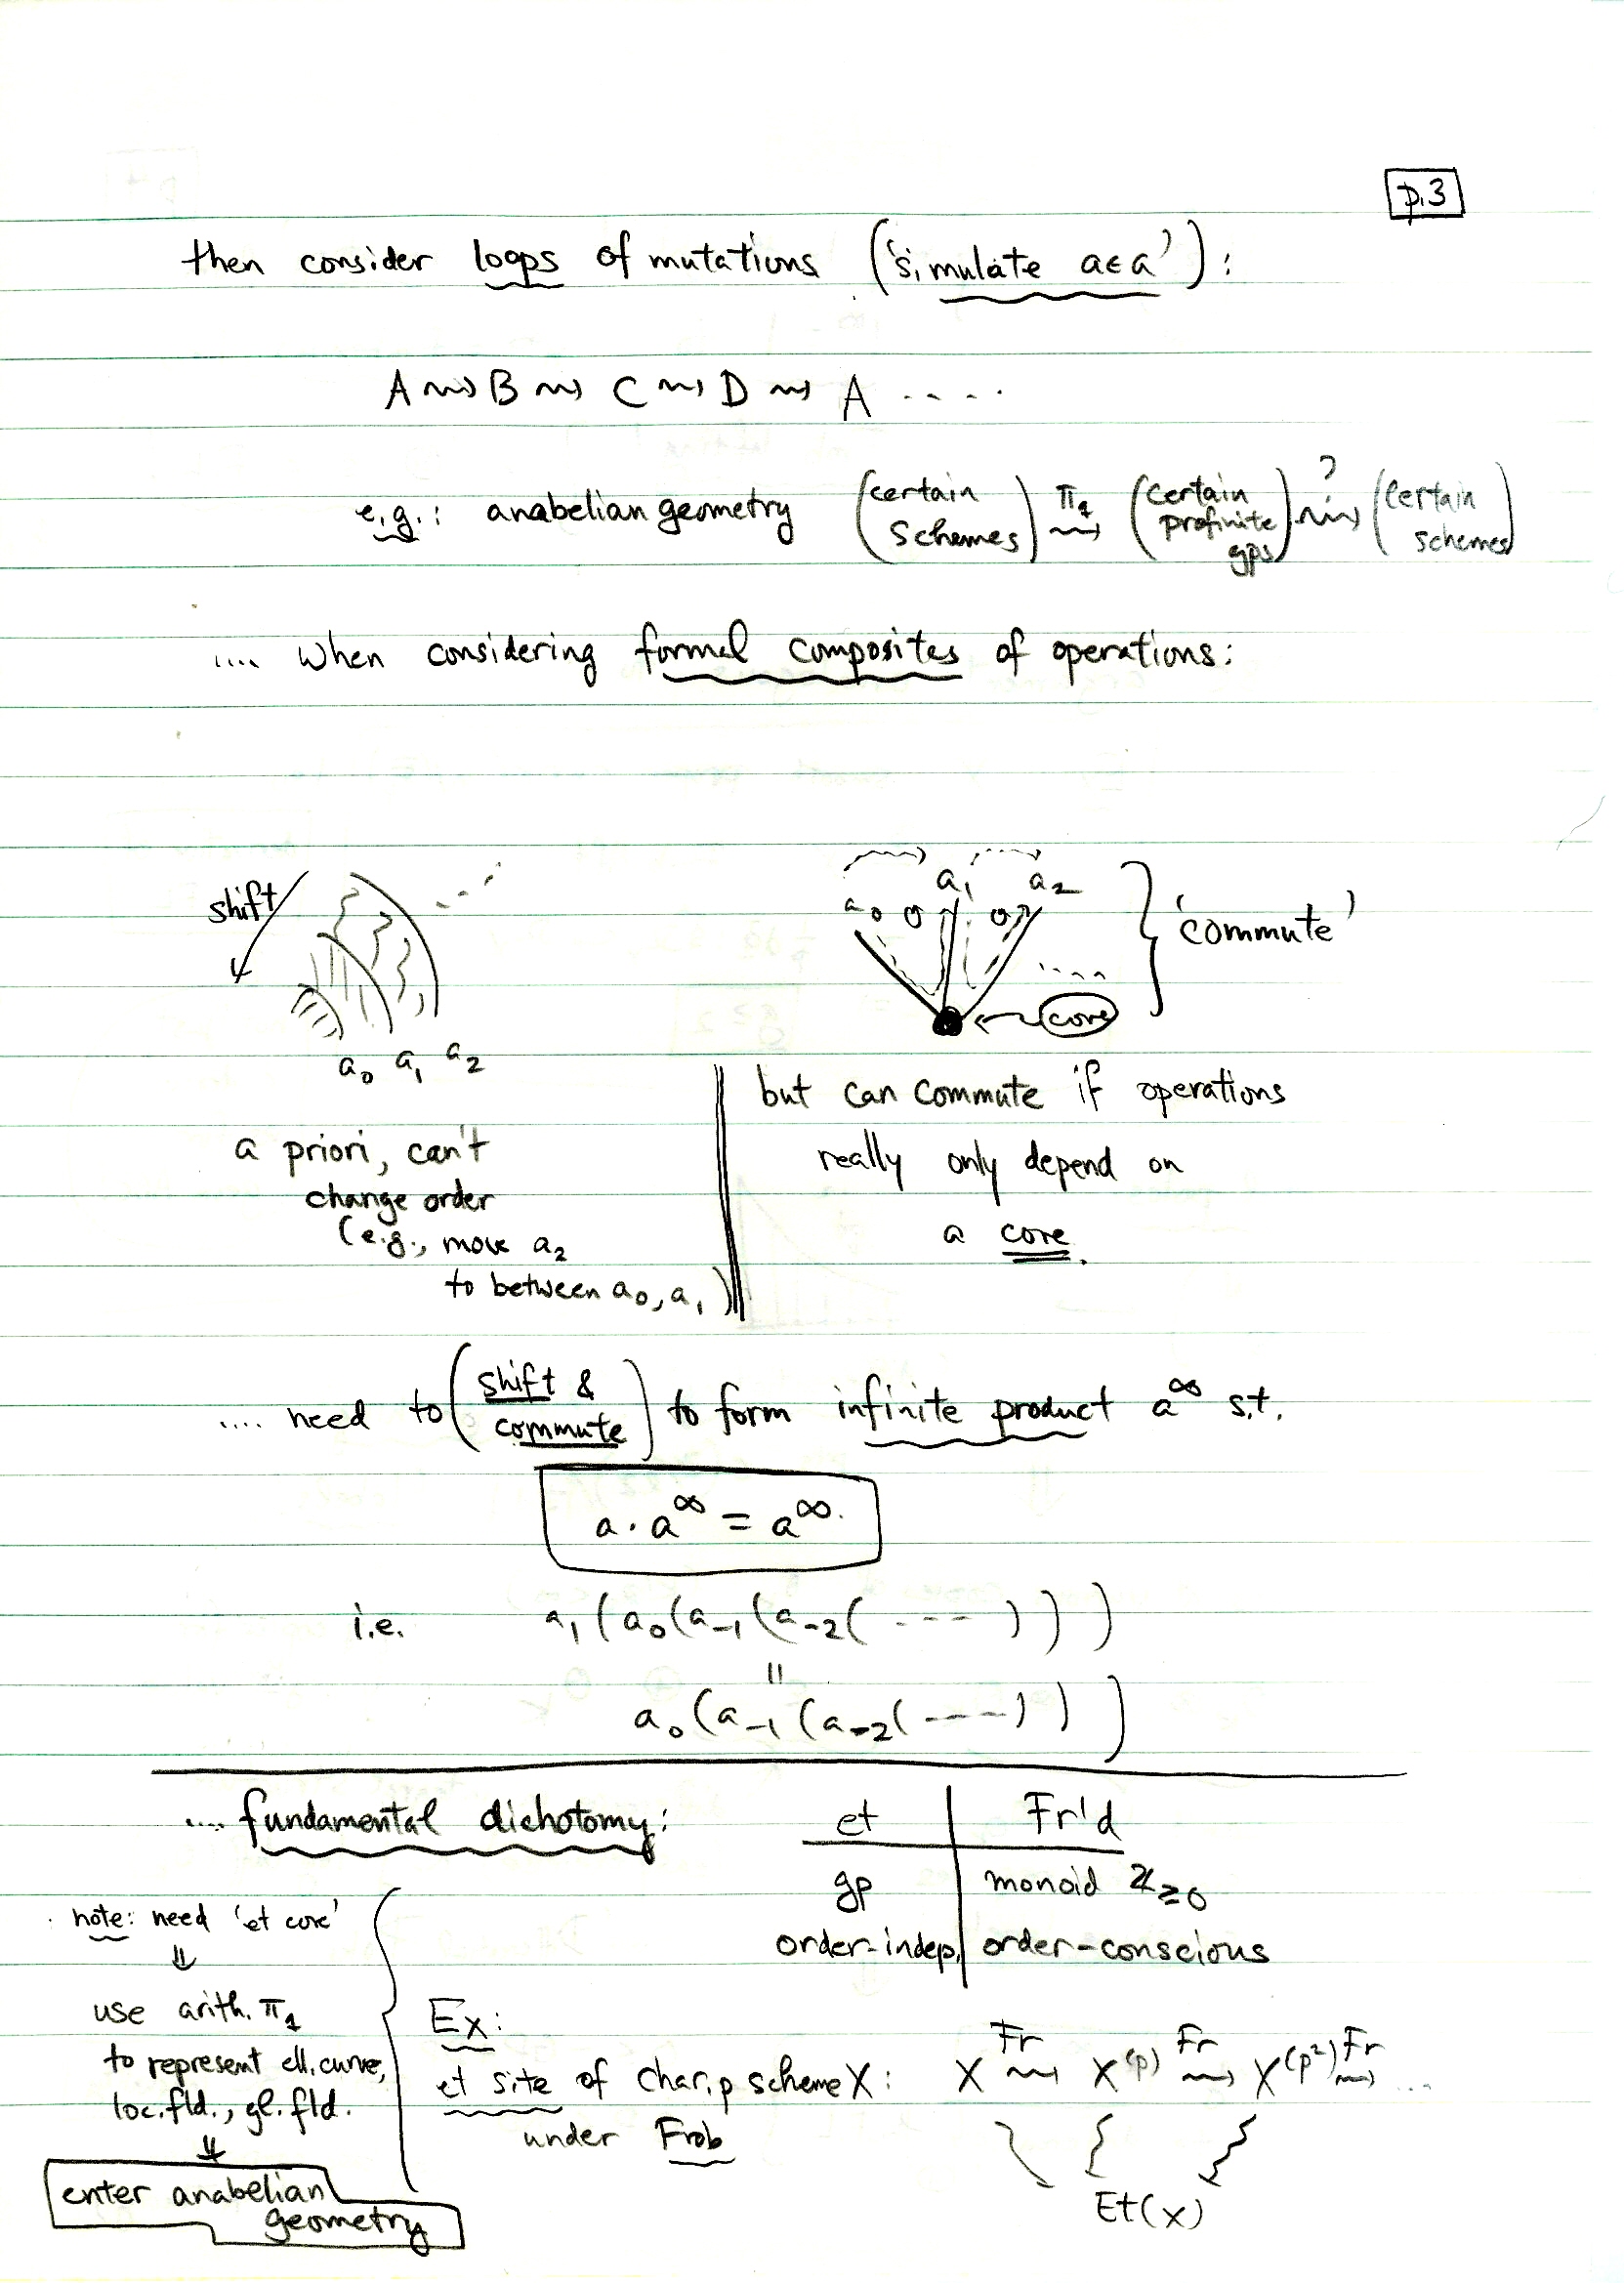 p.3
then consider loops of mutations ('simulate a∈a'):
A ⇝ B ⇝ C ⇝ D ⇝ A ....
e.g.: anabelian geometry (certain schemes) π₁ ⇝ (certain profinite gps) ? ⇝ (certain schemes)
.... when considering formal composites of operations:
shift
a₀ a₁ a₂
a priori, can't
change order
(e.g., move a₂
to between a₀, a₁)
a₀ a₁ a₂
'commute'
....
core
but can commute if operations
really only depend on
a core.
.... need to (shift & commute) to form infinite product a^∞ s.t.
a · a^∞ = a^∞.
i.e. a₁(a₀(a₋₁(a₋₂( ---- ))))
=
a₀(a₋₁(a₋₂( ---- )))
.... fundamental dichotomy:
et | Fr'd
gp | monoid ℤ≥0
order-indep. | order-conscious
note: need 'et core'
⇓
use arith. π₁
to represent ell. curve,
loc. fld., gl. fld.
⇓
enter anabelian
geometry
Ex:
et site of char. p scheme X:
under Frob
X Fr ⇝ X^(p) Fr ⇝ X^(p²) Fr ⇝ ...
Et(X)